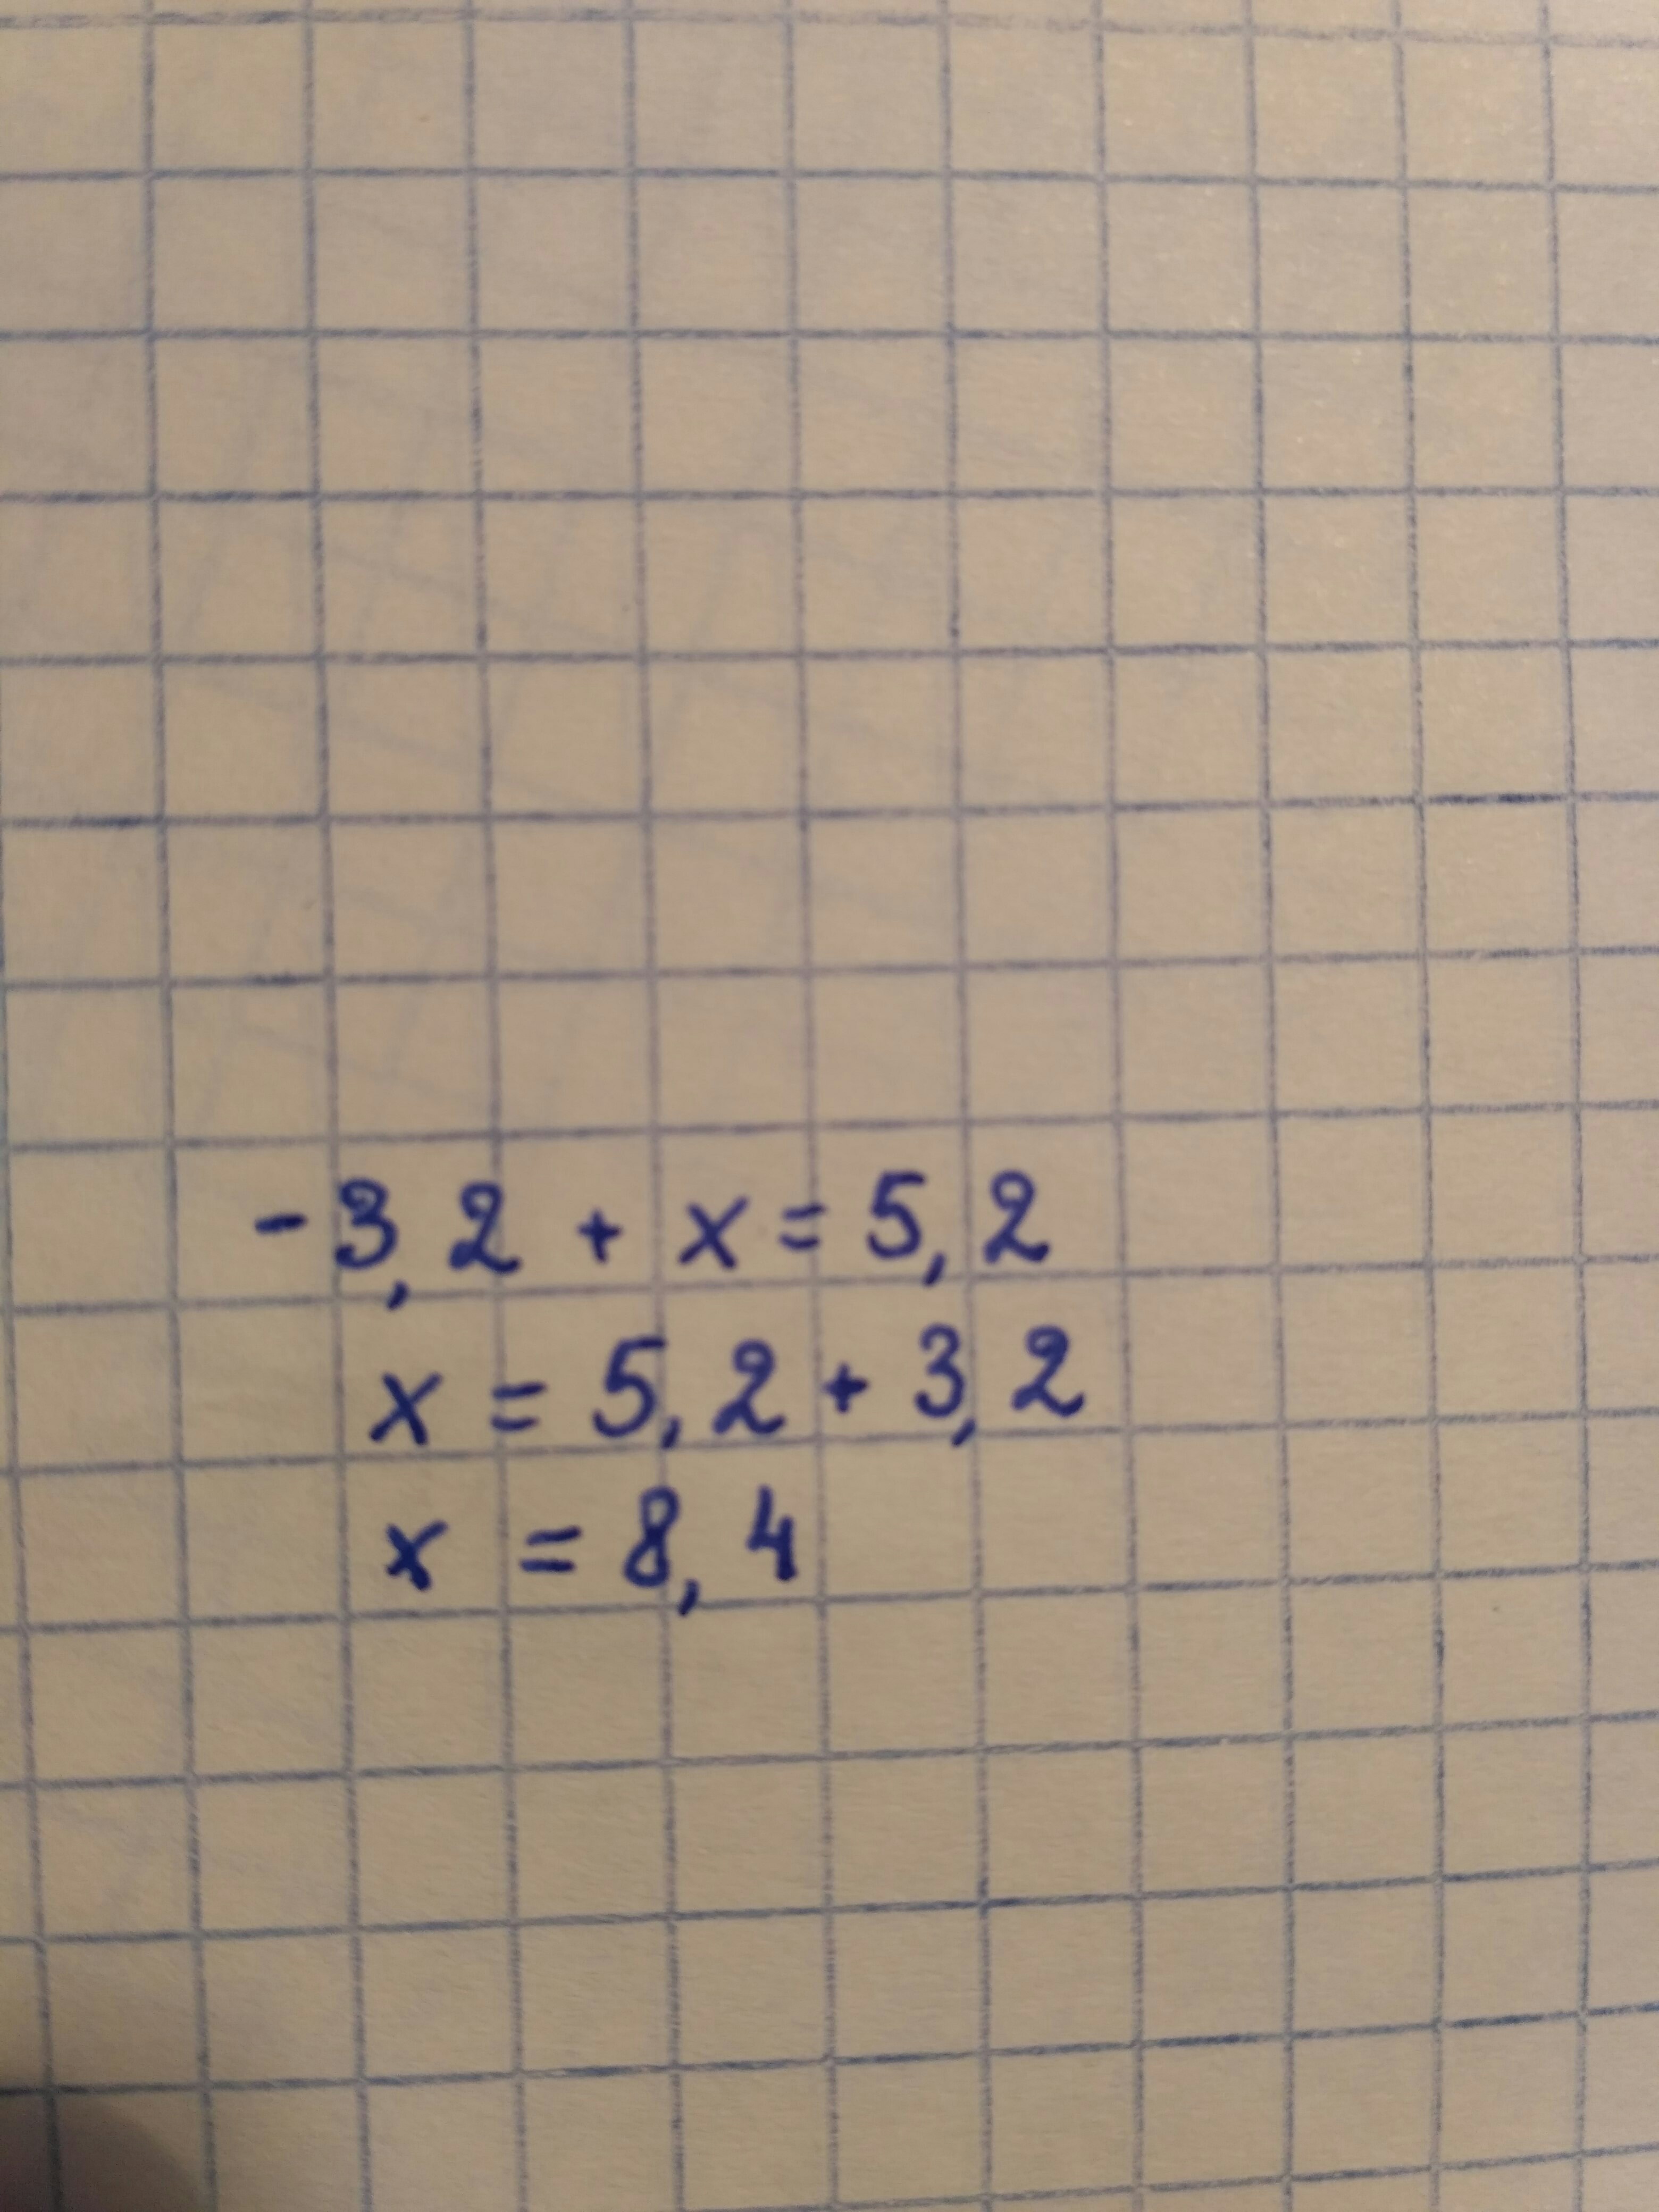 -3,2 + x = 5,2
x = 5,2 + 3,2
x = 8,4